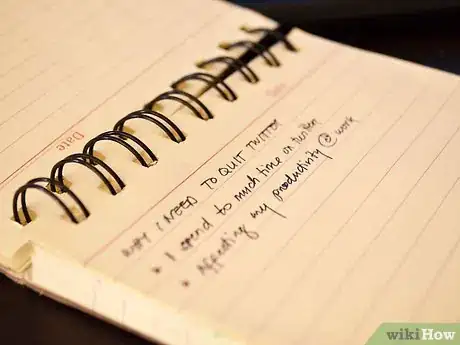 Date
WHY I NEED TO QUIT TWITTER
• I spend to much time on twitter
• Affecting my productivity @ work
wikiHow